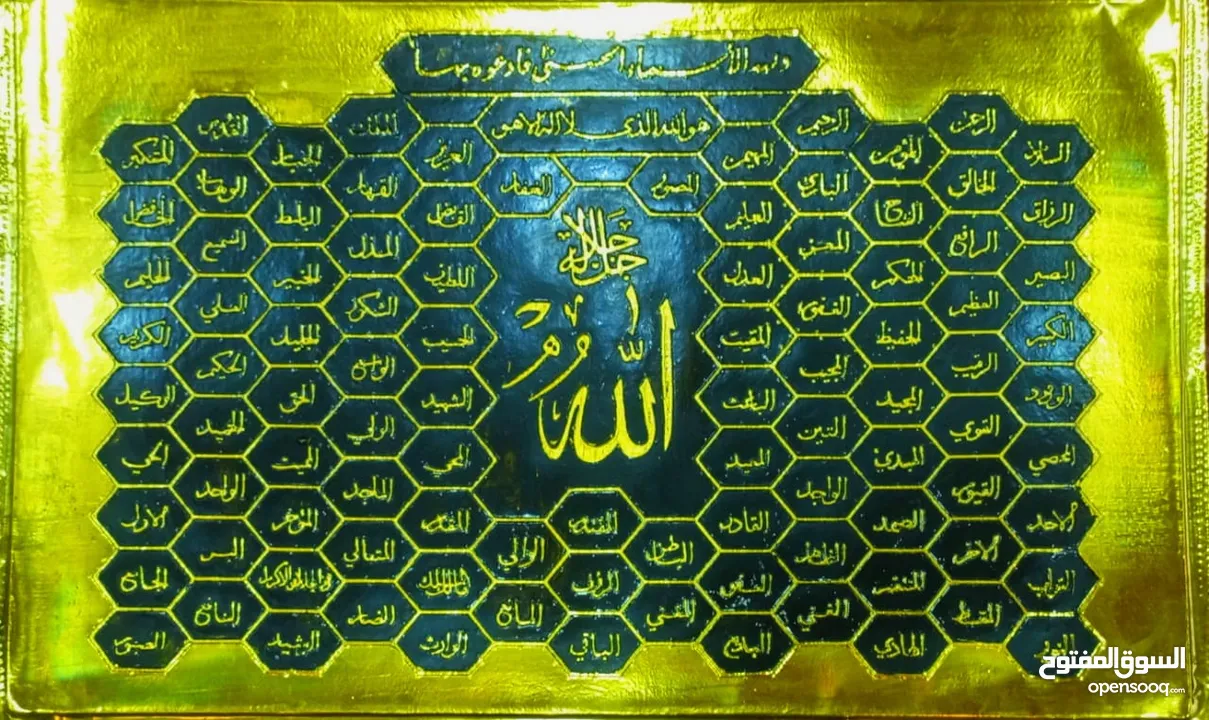 ولله الأسماء الحسنى فادعوه بها
هو الله الذي لا إله إلا هو
الرحمن
الرحيم
الملك
القدوس
السلام
المؤمن
المهيمن
العزيز
الجبار
المتكبر
الخالق
البارئ
المصور
الغفار
القهار
الوهاب
الرزاق
الفتاح
العليم
القابض
الباسط
الخافض
الرافع
المعز
المذل
السميع
البصير
الحكم
العدل
اللطيف
الخبير
الحليم
العظيم
الغفور
الشكور
العلي
الكبير
الحفيظ
المقيت
الحسيب
الجليل
الكريم
الرقيب
المجيب
الواسع
الحكيم
الودود
المجيد
الباعث
الشهيد
الحق
الوكيل
القوي
المتين
الولي
الحميد
المحصي
المبدئ
المعيد
المحيي
المميت
الحي
القيوم
الواجد
الماجد
الواحد
الاحد
الصمد
القادر
المقتدر
المقدم
المؤخر
الأول
الآخر
الظاهر
الباطن
الوالي
المتعالي
البر
التواب
المنتقم
الرؤوف
مالك الملك
ذو الجلال والاكرام
المقسط
الغني
المغني
المانع
الضار
النافع
النور
الهادي
البديع
الباقي
الوارث
الرشيد
الصبور
جل جلاله
الله
السوق المفتوح
opensooq.com